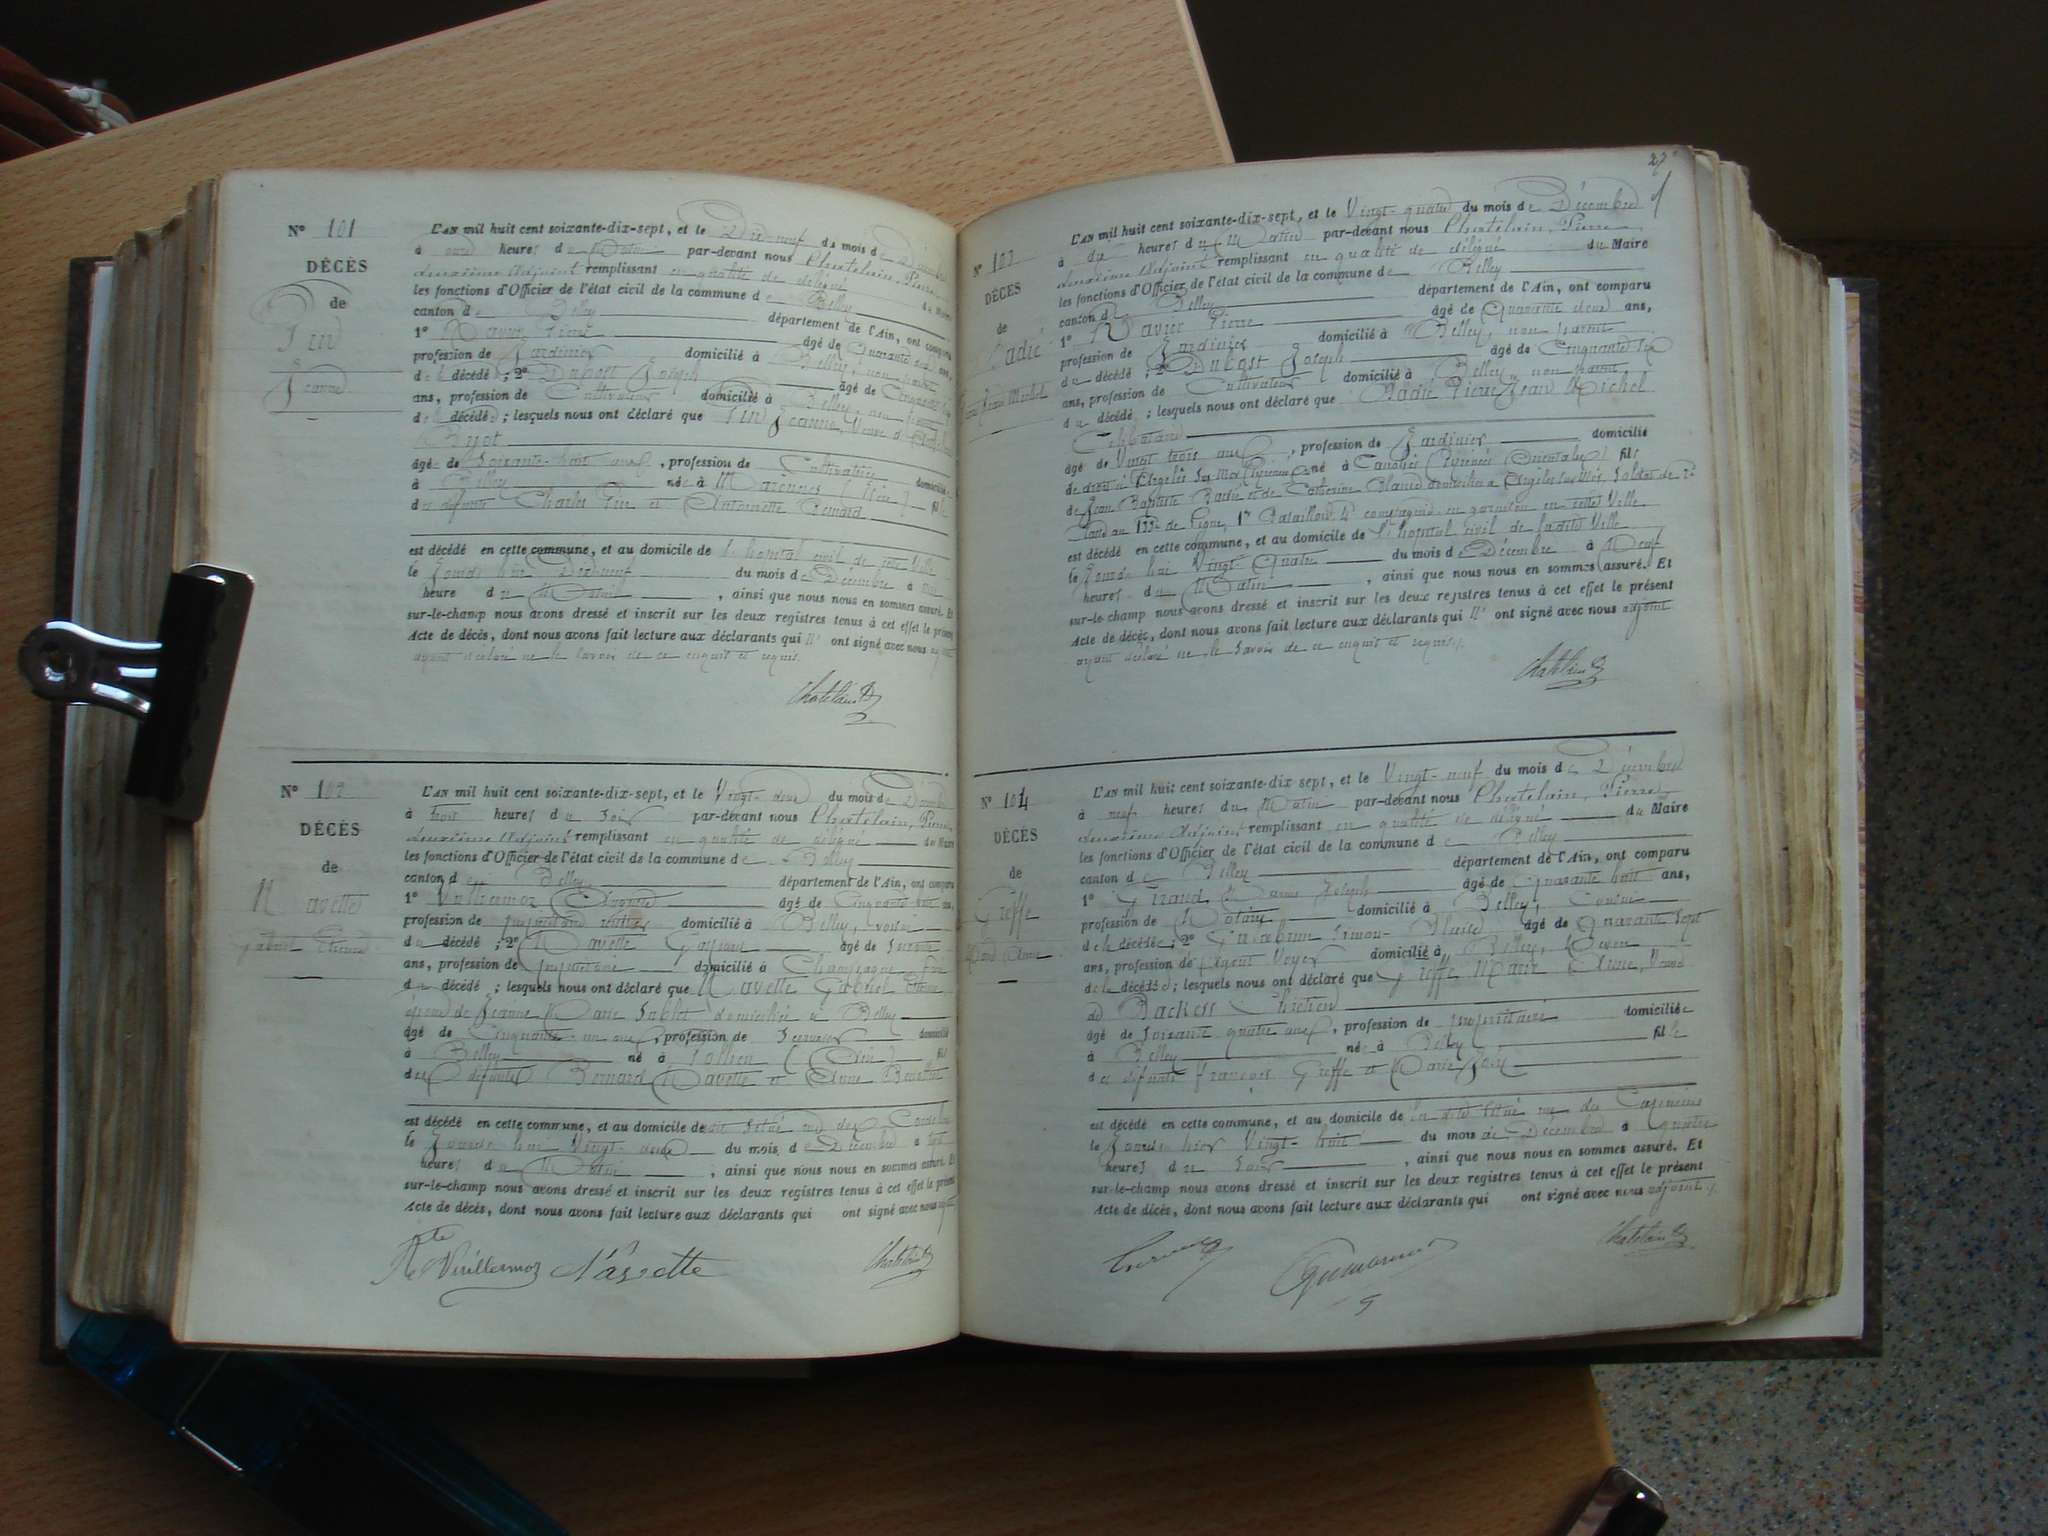 Nº 101
DÉCÈS
de
Pin
Jeanne
L'AN mil huit cent soixante-dix-sept, et le Dix-neuf du mois de Décembre
à onze heures du Matin par-devant nous Chatelain, Pierre
deuxième Adjoint remplissant en qualité de délégué du Maire
les fonctions d'Officier de l'état civil de la commune de Belley
canton de Belley département de l'Ain, ont comparu
1º Ravier Pierre âgé de Quarante deux ans,
profession de Jardinier domicilié à Belley, non parent
de la décédée; 2º Ducost Joseph âgé de Cinquante
ans, profession de Cultivateur domicilié à Belley, non
de la décédée; lesquels nous ont déclaré que Pin Jeanne, Veuve
âgée de Soixante-huit ans, profession de Cultivatrice domiciliée
à Belley née à fille
des défunts Charles Pin et Antoinette
est décédé en cette commune, et au domicile de l'hopital civil de cette Ville
le Jourd'hui Dix-neuf du mois de Décembre à
heure du Matin, ainsi que nous nous en sommes assuré. Et
sur-le-champ nous avons dressé et inscrit sur les deux registres tenus à cet effet le présent
Acte de décès, dont nous avons fait lecture aux déclarants qui n' ont signé avec nous adjoint
ayant déclaré ne le savoir de ce enquis et requis.
Chatelain
Nº 102
DÉCÈS
de
Navette
Gabriel Etienne
L'AN mil huit cent soixante-dix-sept, et le Vingt-deux du mois de Décembre
à trois heures du Soir par-devant nous Chatelain, Pierre
deuxième Adjoint remplissant en qualité de délégué du Maire
les fonctions d'Officier de l'état civil de la commune de Belley
canton de Belley département de l'Ain, ont comparu
1º Vuillermoz âgé de Cinquante huit ans,
profession de domicilié à Belley, voisin
du décédé; 2º Navette âgé de Soixante
ans, profession de propriétaire domicilié à Champagne
du décédé; lesquels nous ont déclaré que Navette Gabriel Etienne
époux de Jeanne Marie Sablet domiciliée à Belley
âgé de Cinquante-un ans, profession de Serrurier domicilié
à Belley né à (Ain) fils
des défunts Bernard Navette et Anne
est décédé en cette commune, et au domicile de
le Jourd'hui Vingt-deux du mois de Décembre à sept
heures du Matin, ainsi que nous nous en sommes assuré. Et
sur-le-champ nous avons dressé et inscrit sur les deux registres tenus à cet effet le présent
Acte de décès, dont nous avons fait lecture aux déclarants qui ont signé avec nous adjoint
Vuillermoz Navette Chatelain
Nº 103
DÉCÈS
de
Badie
Pierre Jean Michel
L'AN mil huit cent soixante-dix-sept, et le Vingt-quatre du mois de Décembre
à dix heures du Matin par-devant nous Chatelain, Pierre,
deuxième Adjoint remplissant en qualité de délégué du Maire
les fonctions d'Officier de l'état civil de la commune de Belley
canton de Belley département de l'Ain, ont comparu
1º Ravier Pierre âgé de Quarante deux ans,
profession de Jardinier domicilié à Belley, non parent
du décédé; 2º Ducost Joseph âgé de Cinquante six
ans, profession de Cultivateur domicilié à Belley non parent
du décédé; lesquels nous ont déclaré que Badie Pierre Jean Michel
Célibataire
âgé de Vingt trois ans, profession de Jardinier domicilié
de droit à Argelès sur Mer né à (Pyrénées Orientales) fils
de Jean Baptiste Badie et de Catherine domiciliés à Argelès sur Mer, Soldat de 2e
classe au 133e de ligne, 1er Bataillon, 4e compagnie en garnison en cette Ville
est décédé en cette commune, et au domicile de l'hopital civil de ladite Ville
le Jourd'hui Vingt-Quatre du mois de Décembre à Neuf
heures du Matin, ainsi que nous nous en sommes assuré. Et
sur-le-champ nous avons dressé et inscrit sur les deux registres tenus à cet effet le présent
Acte de décès, dont nous avons fait lecture aux déclarants qui n' ont signé avec nous adjoint
ayant déclaré ne le savoir de ce enquis et requis.
Chatelain
Nº 104
DÉCÈS
de
Greffe
Marie Anne
L'AN mil huit cent soixante-dix-sept, et le Vingt-neuf du mois de Décembre
à neuf heures du Matin par-devant nous Chatelain, Pierre,
deuxième Adjoint remplissant en qualité de délégué du Maire
les fonctions d'Officier de l'état civil de la commune de Belley
canton de Belley département de l'Ain, ont comparu
1º Joseph âgé de Quarante huit ans,
profession de Notaire domicilié à Belley, Cousin
de la décédée; 2º Simon âgé de Quarante sept
ans, profession de Agent Voyer domicilié à Belley,
de la décédée; lesquels nous ont déclaré que Greffe Marie Anne, Veuve
de
âgée de Soixante quatre ans, profession de propriétaire domiciliée
à Belley née à Belley fille
des défunts François Greffe et Marie
est décédé en cette commune, et au domicile de
le Jour hier Vingt-huit du mois de Décembre à quatre
heures du Soir, ainsi que nous nous en sommes assuré. Et
sur-le-champ nous avons dressé et inscrit sur les deux registres tenus à cet effet le présent
Acte de décès, dont nous avons fait lecture aux déclarants qui ont signé avec nous adjoint
Chatelain